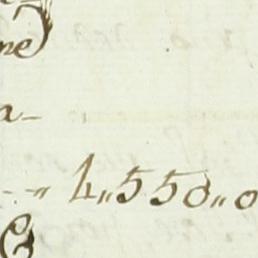 ne)
a-
-„ 4„550„0